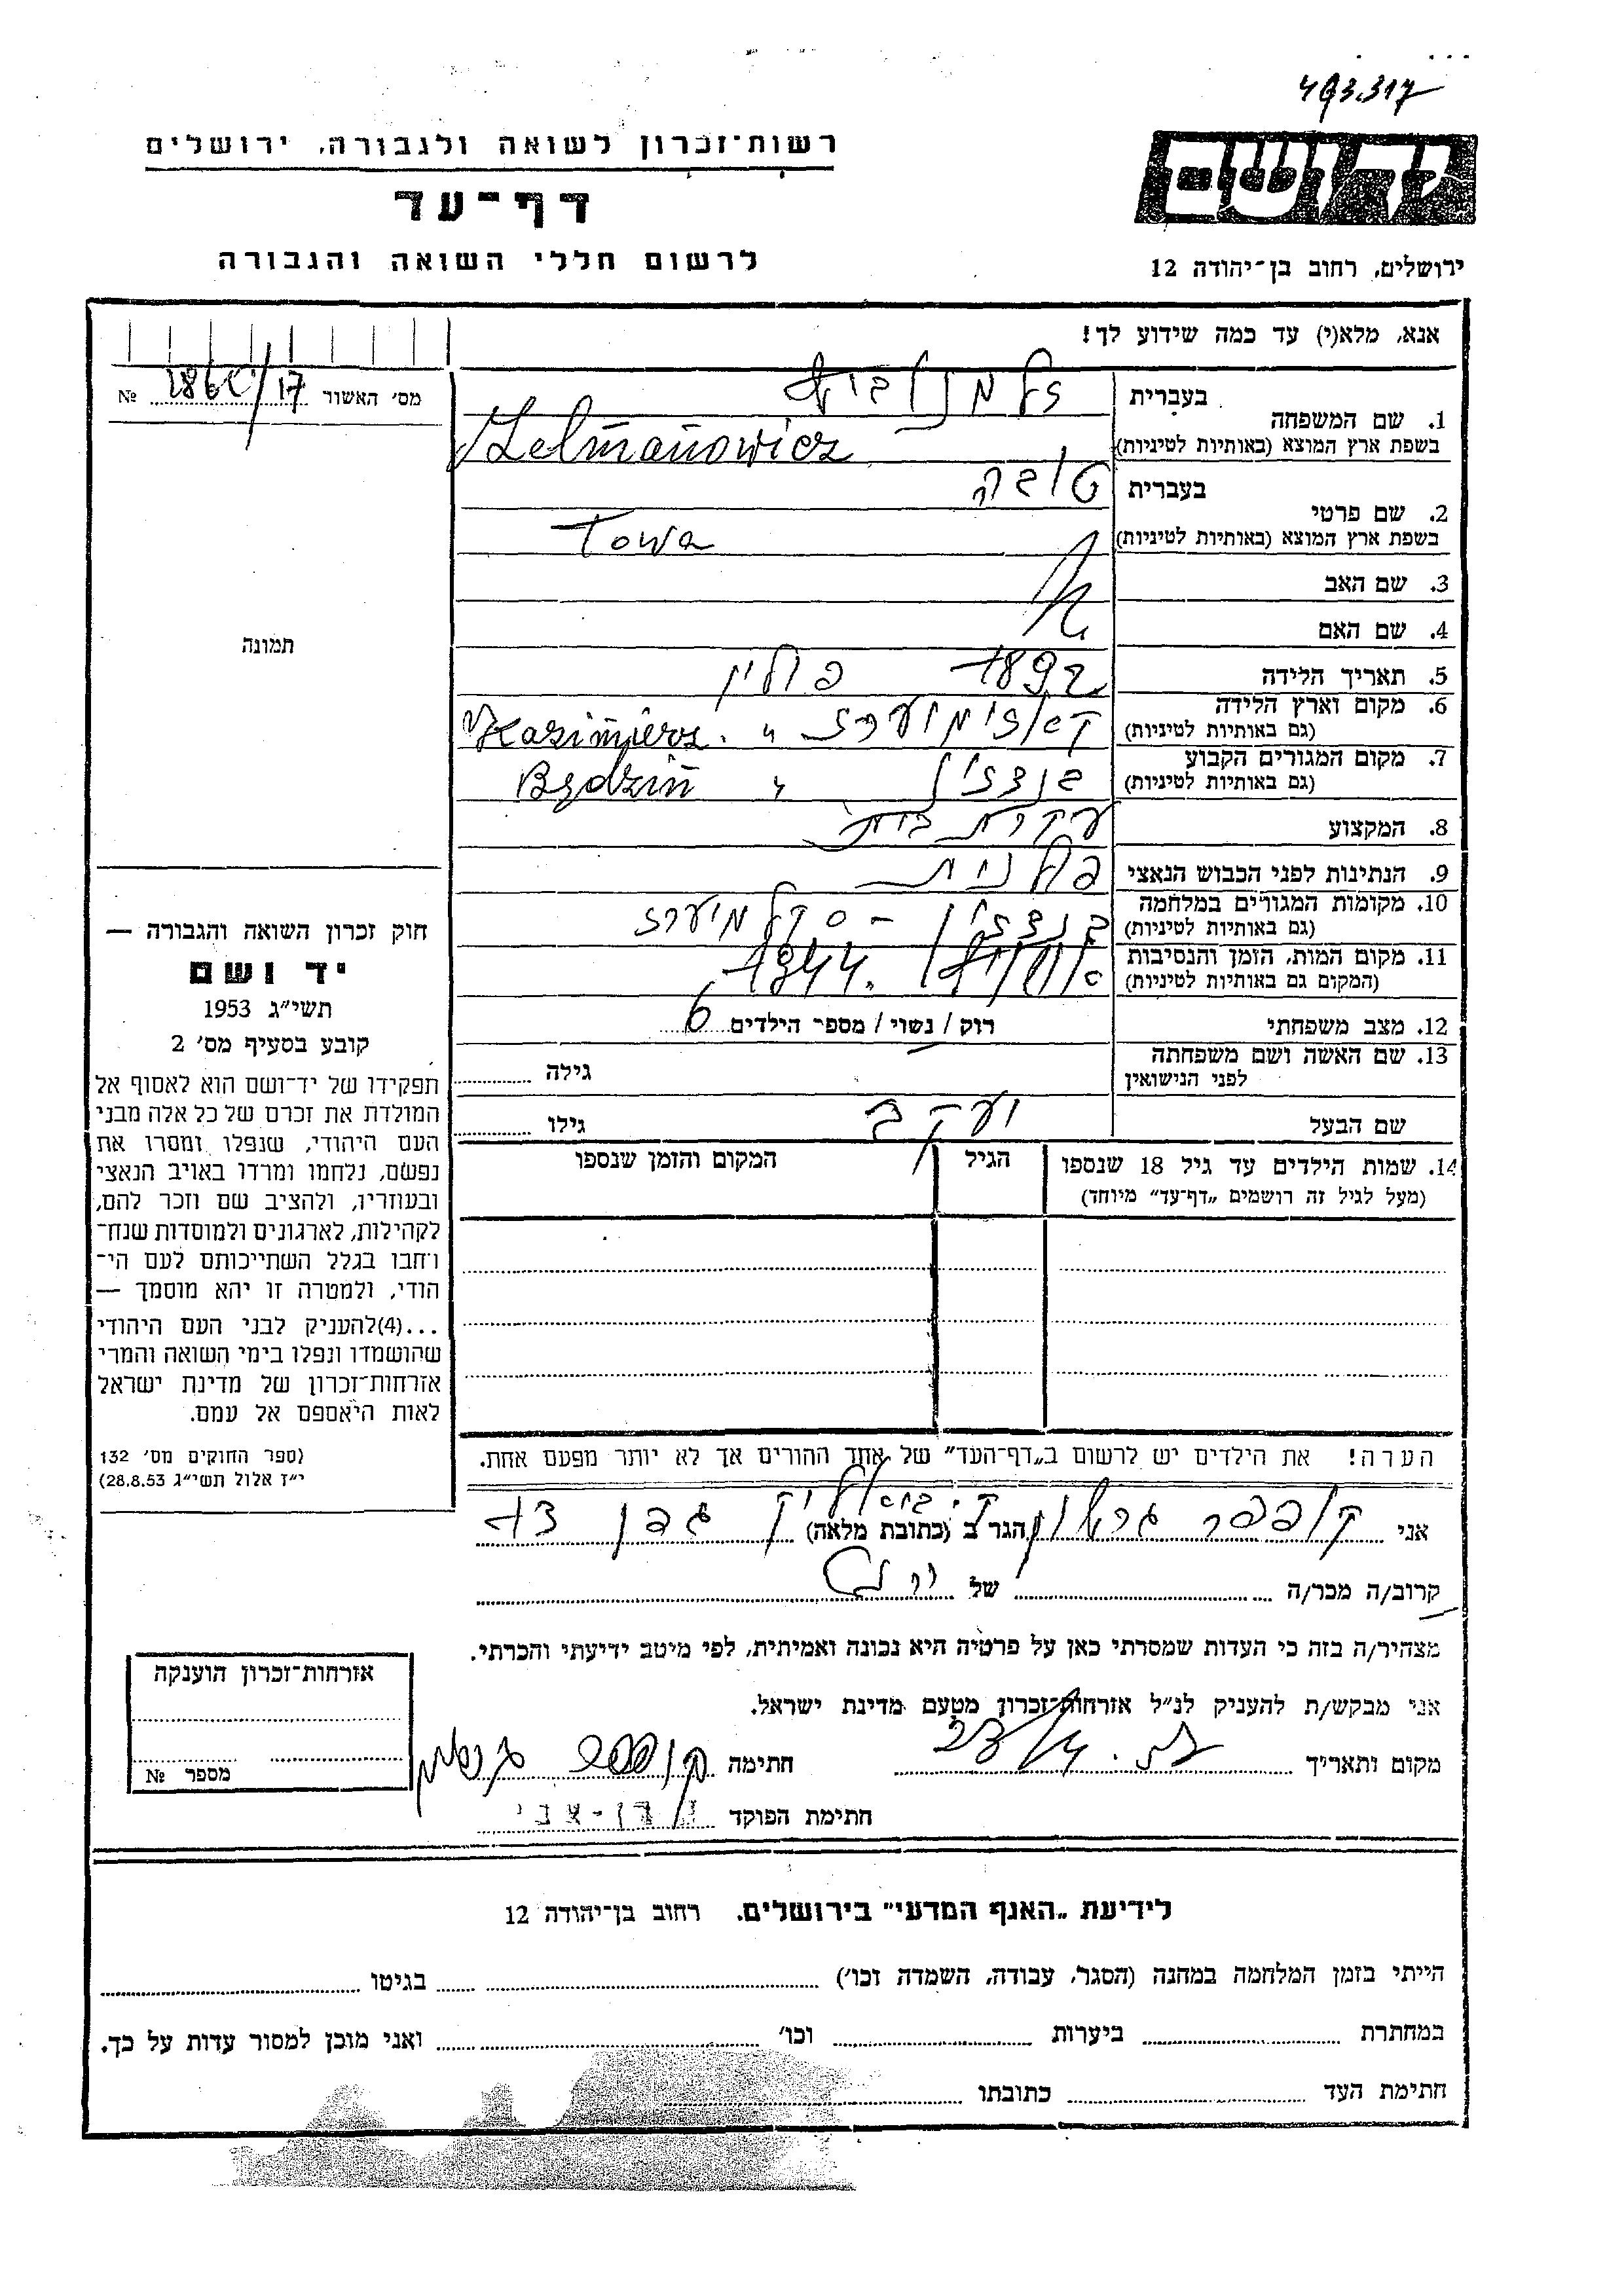 493.317
רשות־זכרון לשואה ולגבורה, ירושלים
דף־עד
לרשום חללי השואה והגבורה
יד ושם
ירושלים, רחוב בן־יהודה 12
אנא, מלא(י) עד כמה שידוע לך!
מס׳ האשור 17 / № 
1. שם המשפחה בעברית
בשפת ארץ המוצא (באותיות לטיניות) Zelmanowicz
2. שם פרטי בעברית טובה
בשפת ארץ המוצא (באותיות לטיניות) Towa
3. שם האב
4. שם האם
5. תאריך הלידה 1892 פולין
6. מקום וארץ הלידה (גם באותיות לטיניות) קאזימיערז " Kazimierz
7. מקום המגורים הקבוע (גם באותיות לטיניות) בנדזין " Będzin
8. המקצוע עקרת בית
9. הנתינות לפני הכבוש הנאצי פולנית
10. מקומות המגורים במלחמה (גם באותיות לטיניות) בנדזין -
11. מקום המות, הזמן והנסיבות (המקום גם באותיות לטיניות) 1944.
12. מצב משפחתי רוק / נשוי / מספר הילדים 6
13. שם האשה ושם משפחתה לפני הנישואין גילה
שם הבעל יעקב גילו
14. שמות הילדים עד גיל 18 שנספו (מעל לגיל זה רושמים „דף־עד״ מיוחד) הגיל המקום והזמן שנספו
תמונה
חוק זכרון השואה והגבורה —
יד ושם
תשי״ג 1953
קובע בסעיף מס׳ 2
תפקידו של יד־ושם הוא לאסוף אל
המולדת את זכרם של כל אלה מבני
העם היהודי, שנפלו ומסרו את
נפשם, נלחמו ומרדו באויב הנאצי
ובעוזריו, ולהציב שם וזכר להם,
לקהילות, לארגונים ולמוסדות שנח־
רבו בגלל השתייכותם לעם הי־
הודי, ולמטרה זו יהא מוסמך —
...(4)להעניק לבני העם היהודי
שהושמדו ונפלו בימי השואה והמרי
אזרחות־זכרון של מדינת ישראל
לאות היאספם אל עמם.
(ספר החוקים מס׳ 132
י״ז אלול תשי״ג 28.8.53)
הערה! את הילדים יש לרשום ב„דף־העד״ של אחד ההורים אך לא יותר מפעם אחת.
אני קופפר הגר ב (כתובת מלאה) ק. ביאליק גפן
קרוב/ה מכר/ה של
מצהיר/ה בזה כי העדות שמסרתי כאן על פרטיה היא נכונה ואמיתית, לפי מיטב ידיעתי והכרתי.
אני מבקש/ת להעניק לנ״ל אזרחות־זכרון מטעם מדינת ישראל.
מקום ותאריך חתימה קופפר
חתימת הפוקד
אזרחות־זכרון הוענקה
מספר №
לידיעת „האגף המדעי״ בירושלים. רחוב בן־יהודה 12
הייתי בזמן המלחמה במחנה (הסגר, עבודה, השמדה וכו׳) בגיטו
במחתרת ביערות וכו׳ ואני מוכן למסור עדות על כך.
חתימת העד כתובתו